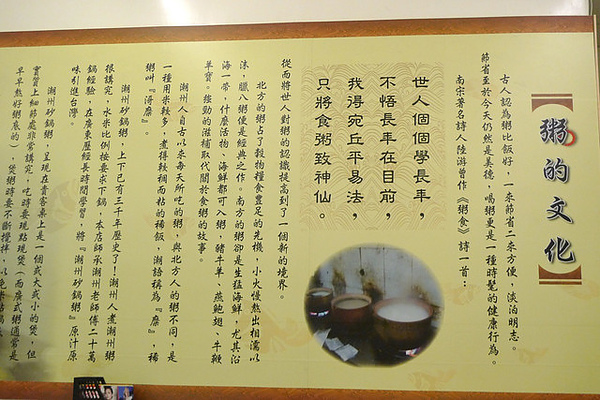 粥的文化
古人認為粥比飯好，一來節省二來方便，淡泊明志。
節省至於今天仍然是美德，喝粥更是一種時髦的健康行為。
南宋著名詩人陸游曾作《粥食》詩一首：
世人個個學長年，
不悟長年在目前，
我得宛丘平易法，
只將食粥致神仙。
從而將世人對粥的認識提高到了一個新的境界。
北方的粥占了穀物糧食豐足的先機，小火慢熬出相濡以
沫，臘八粥便是經典之作。南方的粥卻是生猛海鮮，尤其沿
海一帶，什麼活物、海鮮都可入粥，豬牛羊、燕鮑翅、牛鞭
羊寶。強勁的滋補取代關於食粥的故事。
潮州人自古以來每天所吃的粥，與北方人的粥不同，是
一種用米較多，煮得較稠而粘的稀飯，潮語稱為『糜』，稀
粥叫『滒糜』。
潮州砂鍋粥，上下已有三千年歷史了！潮州人煮潮州粥
很講究，水米比例按要求下鍋，本店師承潮州老師傅二十萬
鍋經驗，在廣東歷經長時間學習，將『潮州砂鍋粥』原汁原
味引進台灣。
潮州砂鍋粥，呈現在貴客桌上是一個或大或小的煲，但
實質上細節處非常講究，吃時要現點現煲（而廣式粥通常是
早早熬好粥底的），煲粥時要不斷攪拌，以免米粘鍋